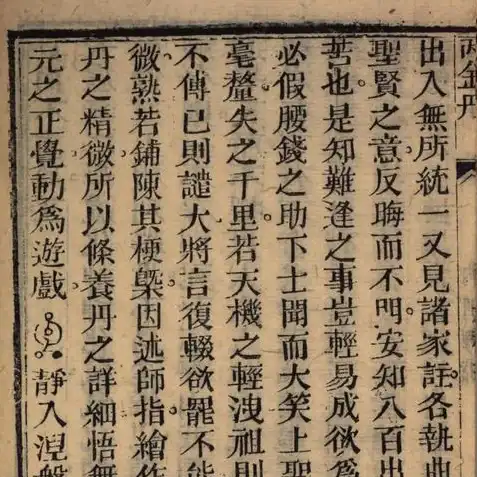 兩金丹
出入無所統一又見諸家註各執
聖賢之意反晦而不明安知八百出
苦也是知難逢之事豈輕易成欲爲
必假腰錢之助下士聞而大笑上聖
毫釐失之千里若天機之輕洩祖則
不傳已則譴大將言復輟欲罷不能
微熟若鋪陳其梗槩因述師指繪作
丹之精微所以條養丹之詳細悟無
元之正覺動爲遊戲靜入湼槃